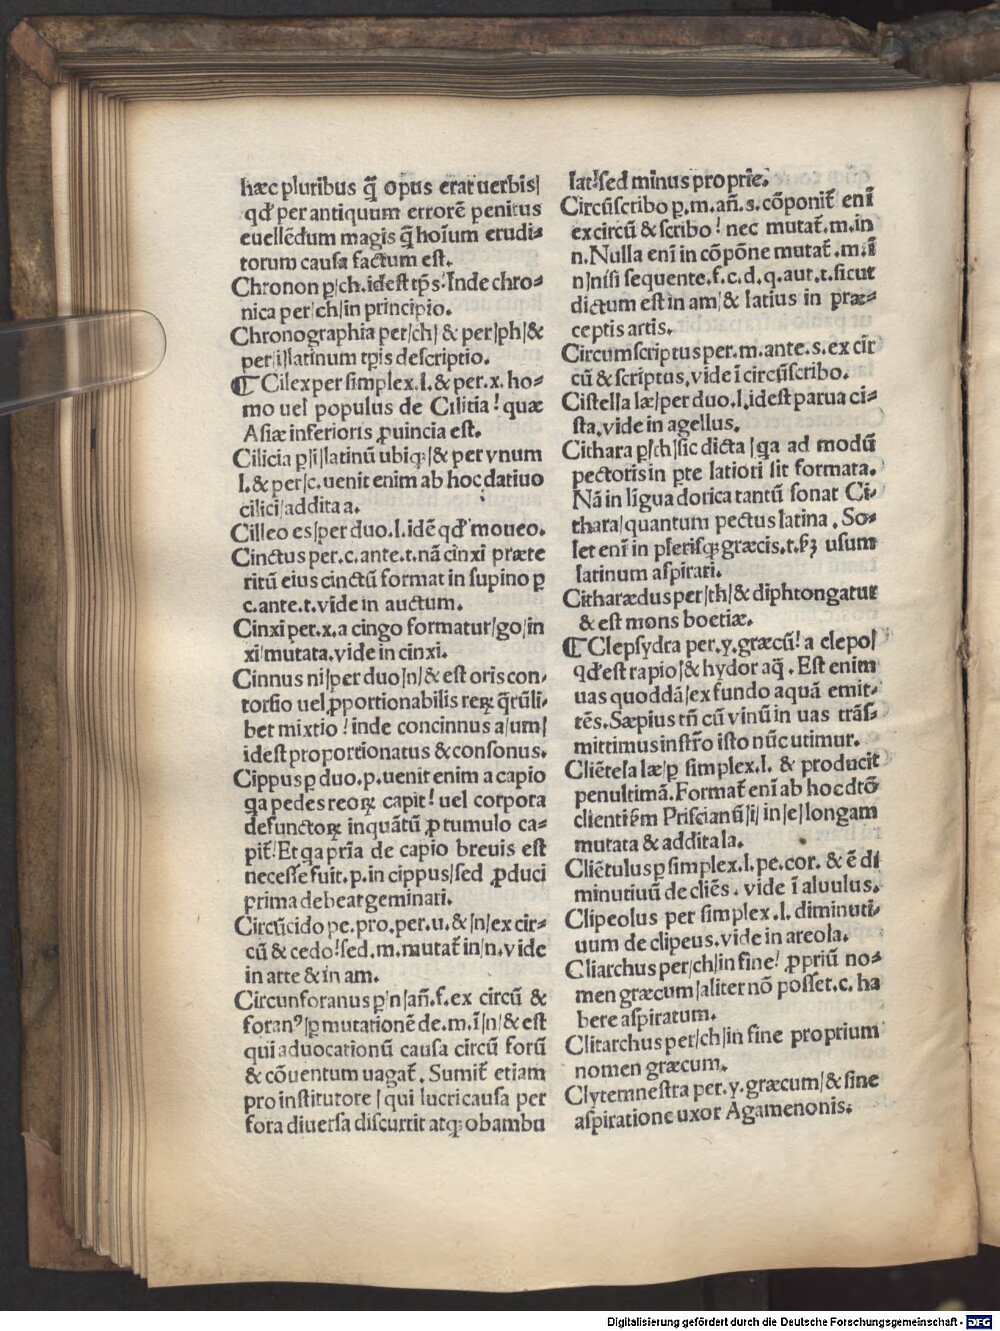 hæc pluribus q̃ opus erat uerbis|
qd' per antiquum errorē penitus
euellēdum magis q̃ hoīum erudi-
torum causa factum est.
Chronon p|ch.idest tp̄s! Inde chro-
nica per|ch|in principio.
Chronographia per|ch| & per|ph|&
per|i|latinum tp̄is descriptio.
¶ Cilex per simplex.l.& per.x. ho-
mo uel populus de Cilitia! quæ
Asiæ inferioris ꝓuincia est.
Cilicia p|i|latinū ubiqꝫ|& per vnum
l.& per|c.uenit enim ab hoc datiuo
cilici|addita a.
Cilleo es|per duo.l.idē qd' moueo.
Cinctus per.c.ante.t.nā cinxi præte
ritū eius cinctū format in supino p
c.ante.t.vide in auctum.
Cinxi per.x.a cingo formatur|go|in
xi|mutata.vide in cinxi.
Cinnus ni|per duo|n|& est oris con-
torsio uel ꝓportionabilis reꝝ q̄rūli-
bet mixtio! inde concinnus a|um|
idest proportionatus & consonus.
Cippus p duo.p.uenit enim a capio
qa pedes reoꝝ capit! uel corpora
defunctoꝝ inquātū ꝓ tumulo ca-
pit!Et qa pr̄ia de capio breuis est
necesse fuit.p.in cippus|sed ꝓduci
prima debeat geminari.
Circūcido pe.pro.per.u.& |n|ex cir-
cū & cedo!sed.m.mutat̄ in|n.vide
in arte & in am.
Circunforanus p|n|añ.f.ex circū &
foranꝰ|p mutationē de.m.ī|n|& est
qui aduocationū causa circū forū
& cōuentum uagat̄. Sumit̄ etiam
pro institutore| qui lucri causa per
fora diuersa discurrit atqꝫ obambu
lat!sed minus proprie.
Circūscribo p.m.añ.s.cōponit̄ enī
ex circū & scribo! nec mutat̄.m.in
n.Nulla enī in cōpōne mutat̄.m.ī
n|nisi sequente.f.c.d.q.aut.t.sicut
dictum est in am|& latius in præ-
ceptis artis.
Circumscriptus per.m.ante.s.ex cir
cū & scriptus.vide ī circūscribo.
Cistella læ|per duo.l.idest parua ci-
sta.vide in agellus.
Cithara p|th|sic dicta |qa ad modū
pectoris in pte latiori sit formata.
Nā in līgua dorica tantū sonat Ci-
thara|quantum pectus latina. So-
let enī in plerisqꝫ græcis.t.ẜꝫ usum
latinum aspirari.
Citharædus per|th|& diphtongatur
& est mons boetiæ.
¶ Clepsydra per.y.græcū! a clepo|
qd'est rapio|& hydor aq̄. Est enim
uas quoddā|ex fundo aquā emit-
tēs.Sæpius tñ cū vinū in uas trāſ-
mittimus inst̄ro isto nūc utimur.
Cliētela læ|p simplex.l. & producit
penultimā.Format̄ enī ab hoc dt̄o
clienti ẜm Priscianū|i| in|e|longam
mutata & addita la.
Cliētulus p simplex.l.pe.cor. & ē di
minutiuū de cliēs. vide ī aluulus.
Clipeolus per simplex.l. diminuti-
uum de clipeus.vide in areola.
Cliarchus per|ch|in fine! ꝓpriū no-
men græcum|aliter nō posset.c. ha
bere aspiratum.
Clitarchus per|ch|in fine proprium
nomen græcum.
Clytemnestra per.y.græcum|& sine
aspiratione uxor Agamenonis.
Digitalisierung gefördert durch die Deutsche Forschungsgemeinschaft - DFG